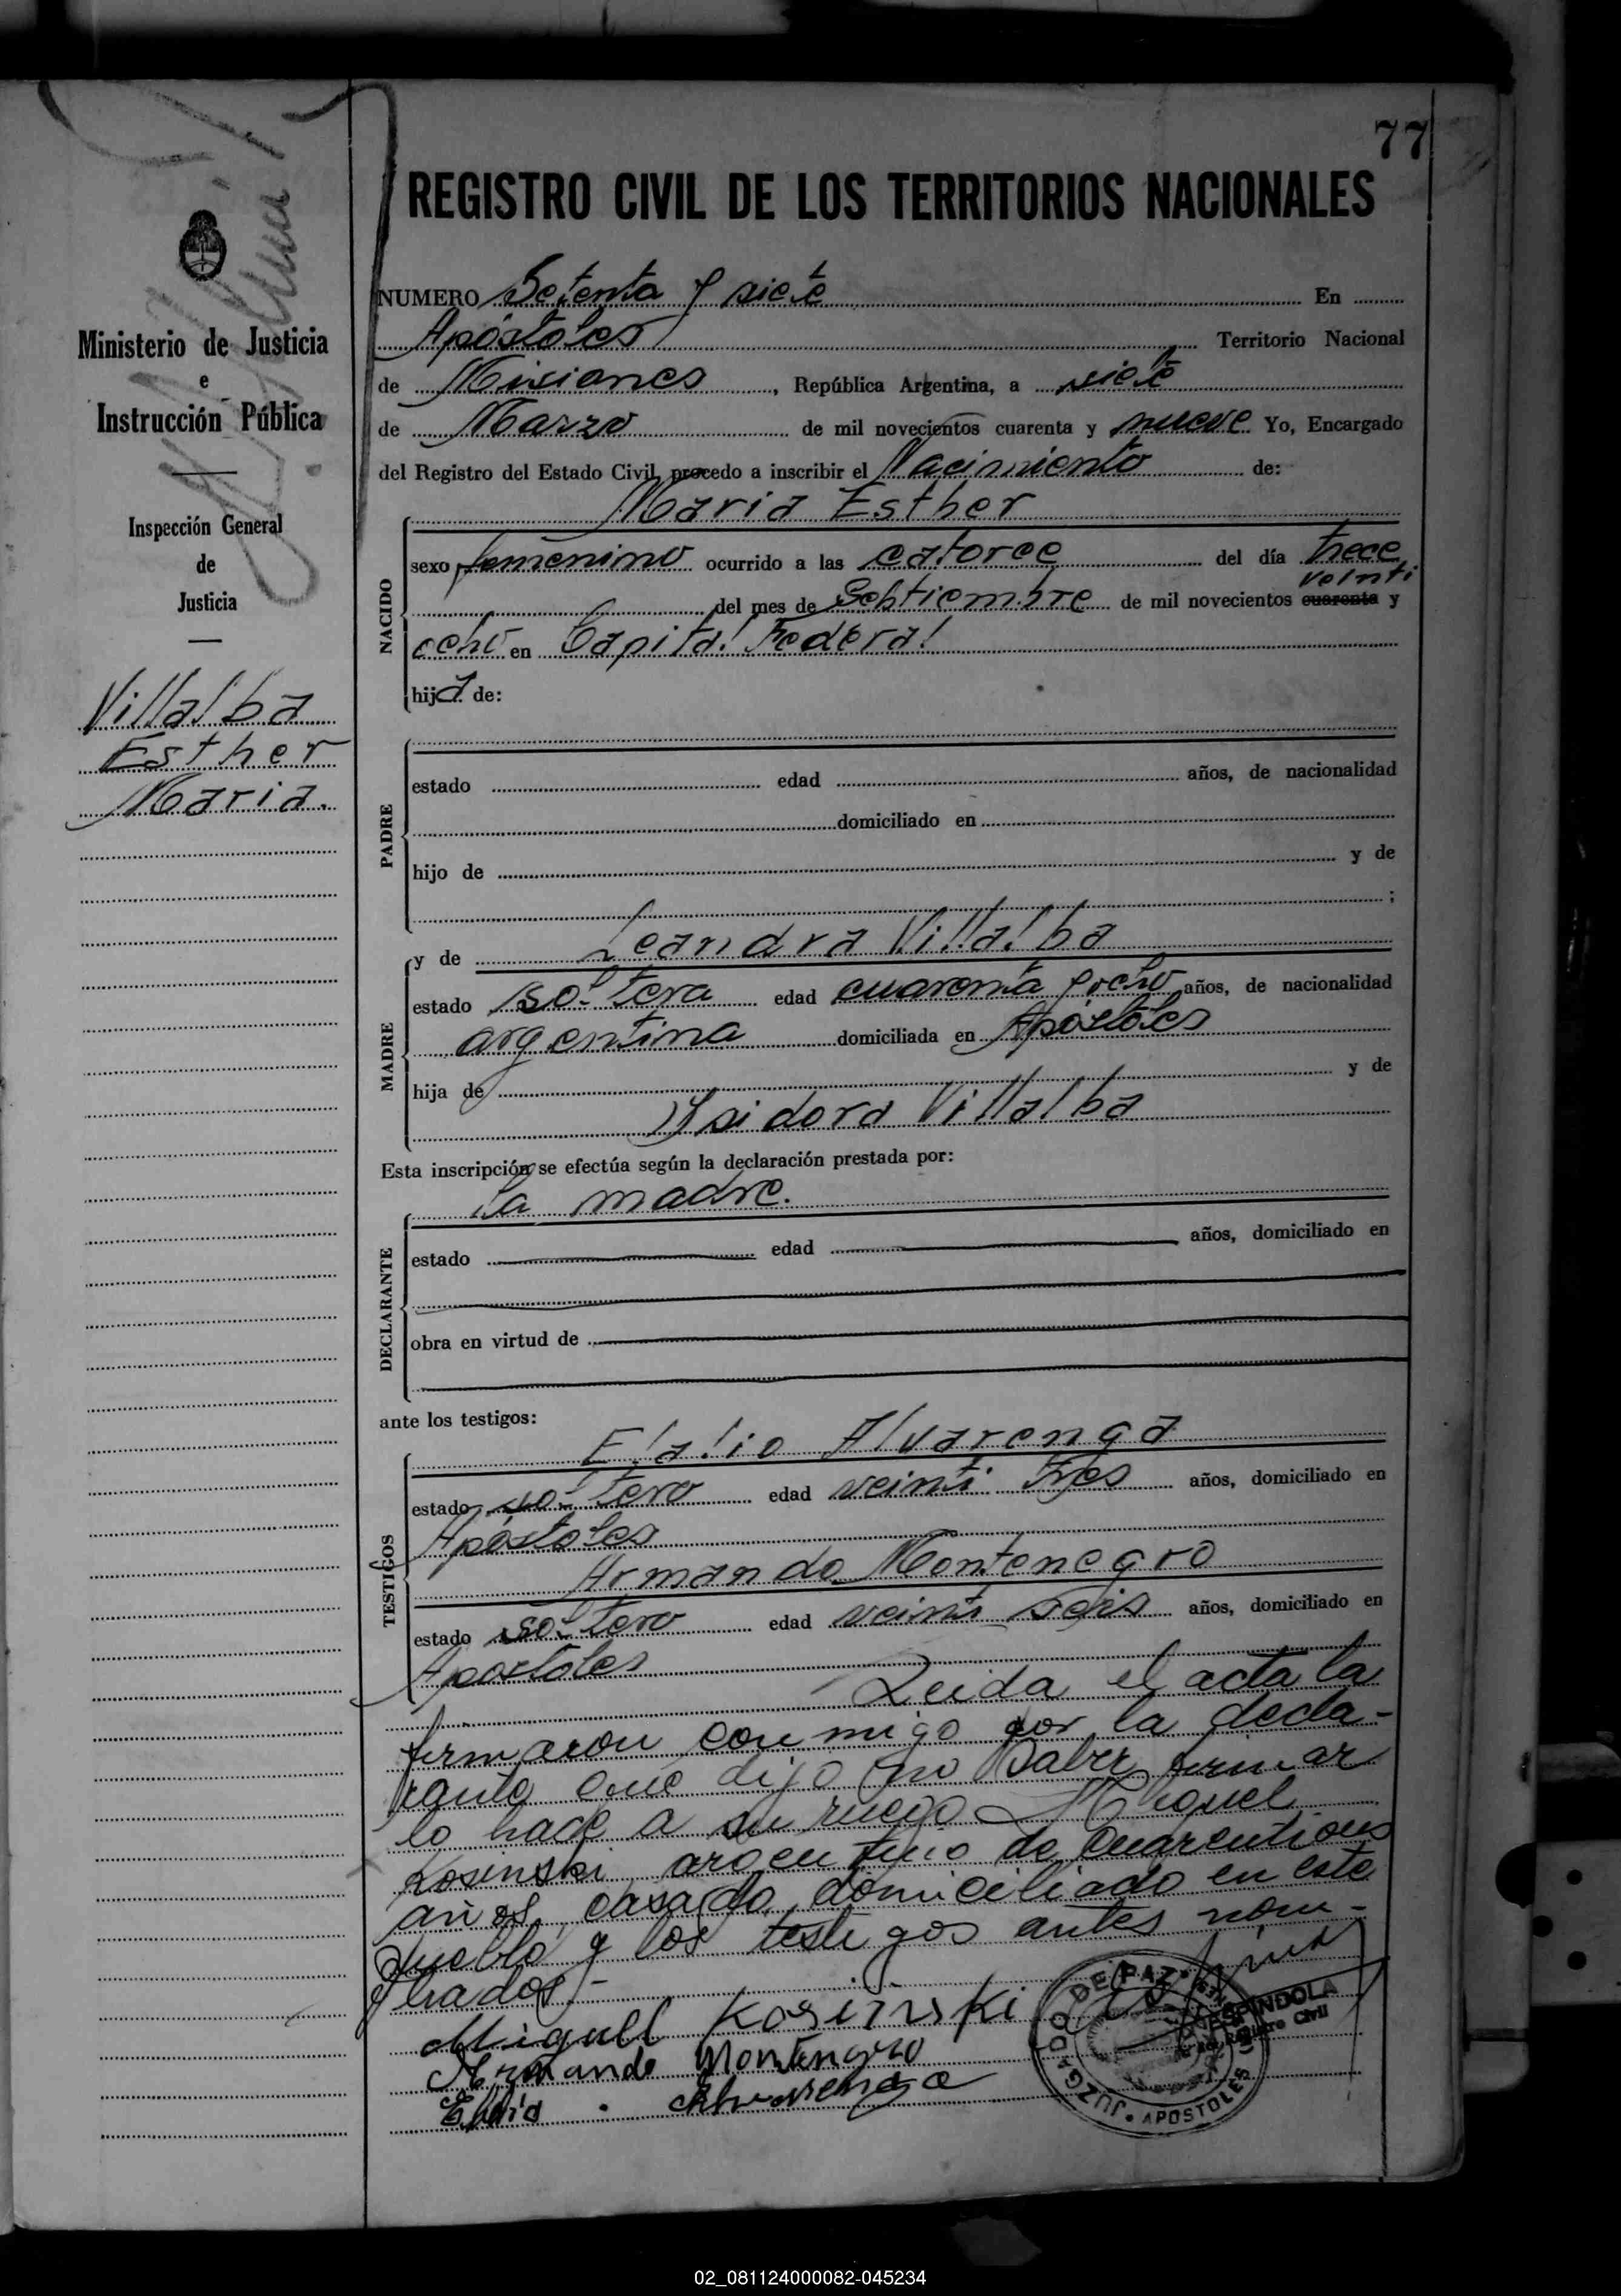 77
REGISTRO CIVIL DE LOS TERRITORIOS NACIONALES
Ministerio de Justicia
e
Instrucción Pública
Inspección General
de
Justicia
Villalba
Esther
Maria.
NUMERO Setenta y siete En
Apóstoles Territorio Nacional
de Misiones, República Argentina, a siete
de Marzo de mil novecientos cuarenta y nueve Yo, Encargado
del Registro del Estado Civil, procedo a inscribir el Nacimiento de:
Maria Esther
NACIDO
sexo femenino ocurrido a las catorce del día trece
veinti
del mes de Sebtiembre de mil novecientos cuarenta y
ocho en Capital Federal
hija de:
PADRE
estado edad años, de nacionalidad
domiciliado en
hijo de y de
;
MADRE
y de Leandra Villalba
estado soltera edad cuarenta y ocho años, de nacionalidad
argentina domiciliada en Apóstoles
hija de y de
Isidora Villalba
Esta inscripción se efectúa según la declaración prestada por:
la madre.
DECLARANTE
estado edad años, domiciliado en
obra en virtud de
ante los testigos:
TESTIGOS
Eladio Alvarenga
estado soltero edad veinti tres años, domiciliado en
Apóstoles
Armando Montenegro
estado soltero edad veinti seis años, domiciliado en
Apostoles
Leida el acta la
firmaron conmigo por la decla-
rante que dijo no saber firmar
lo hace a su ruego Miguel
Kosinski argentino de cuarentiun
años, casado, domiciliado en este
pueblo y los testigos antes nom-
brados.-
Miguell Kosinski
Armando Montenegro
Eladio Alvarenga
JUZGADO DE PAZ
APOSTOLES
ESPINDOLA
Registro Civil
02_081124000082-045234